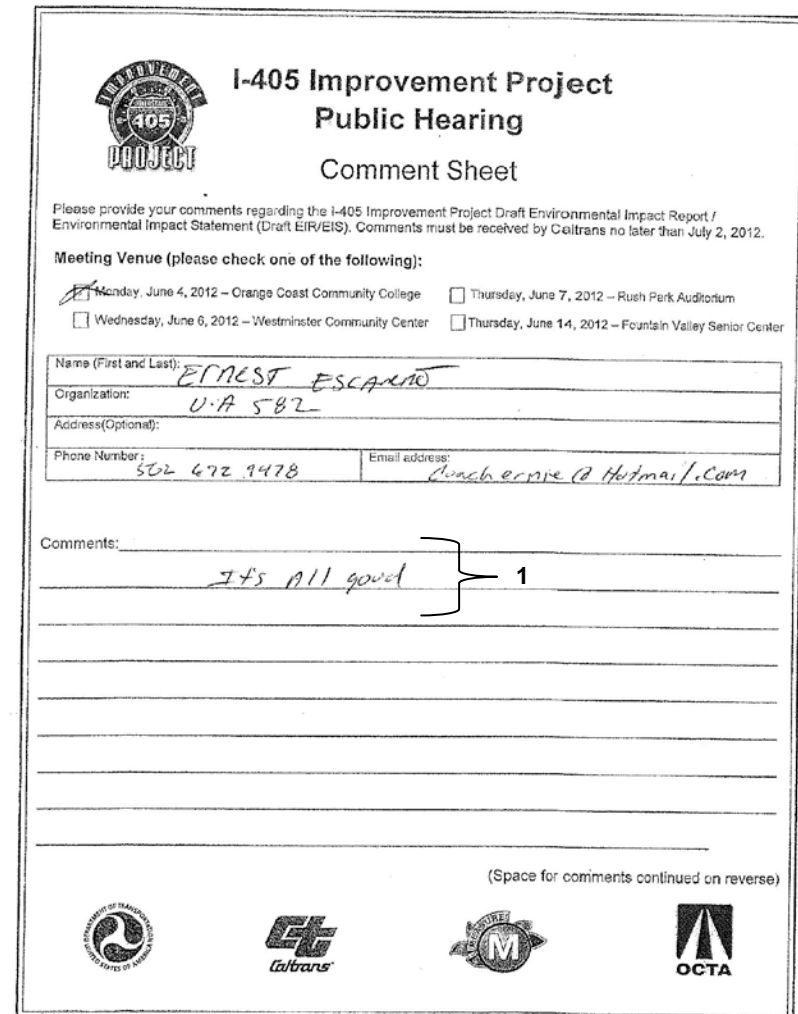 I-405 Improvement Project
Public Hearing
Comment Sheet
IMPROVEMENT
405
PROJECT
Please provide your comments regarding the I-405 Improvement Project Draft Environmental Impact Report /
Environmental Impact Statement (Draft EIR/EIS). Comments must be received by Caltrans no later than July 2, 2012.
Meeting Venue (please check one of the following):
Monday, June 4, 2012 – Orange Coast Community College
Thursday, June 7, 2012 – Rush Park Auditorium
Wednesday, June 6, 2012 – Westminster Community Center
Thursday, June 14, 2012 – Fountain Valley Senior Center
Name (First and Last): ERNEST
Organization: U.A 582
Address(Optional):
Phone Number: 562 672 9478
Email address: coachernie@Hotmail.Com
Comments:
It's All good
1
(Space for comments continued on reverse)
DEPARTMENT OF TRANSPORTATION
UNITED STATES OF AMERICA
Ct
Caltrans
MEASURE
M
OCTA